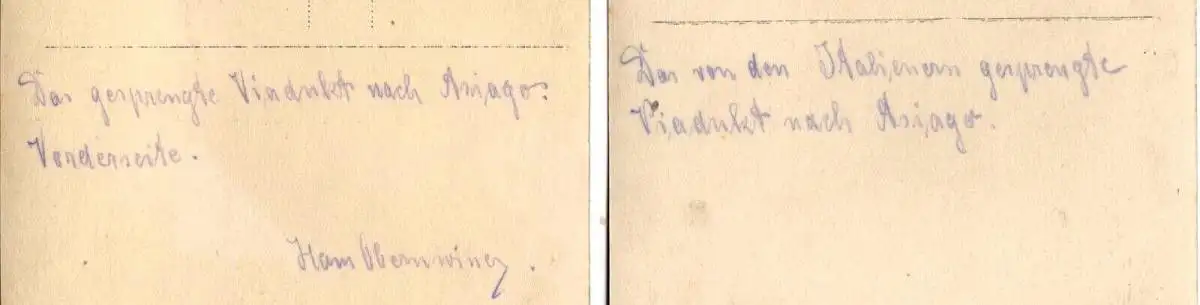 Das gesprengte Viadukt nach Asiago:
Vorderseite.
Hans
Das von den Italienern gesprengte
Viadukt nach Asiago.